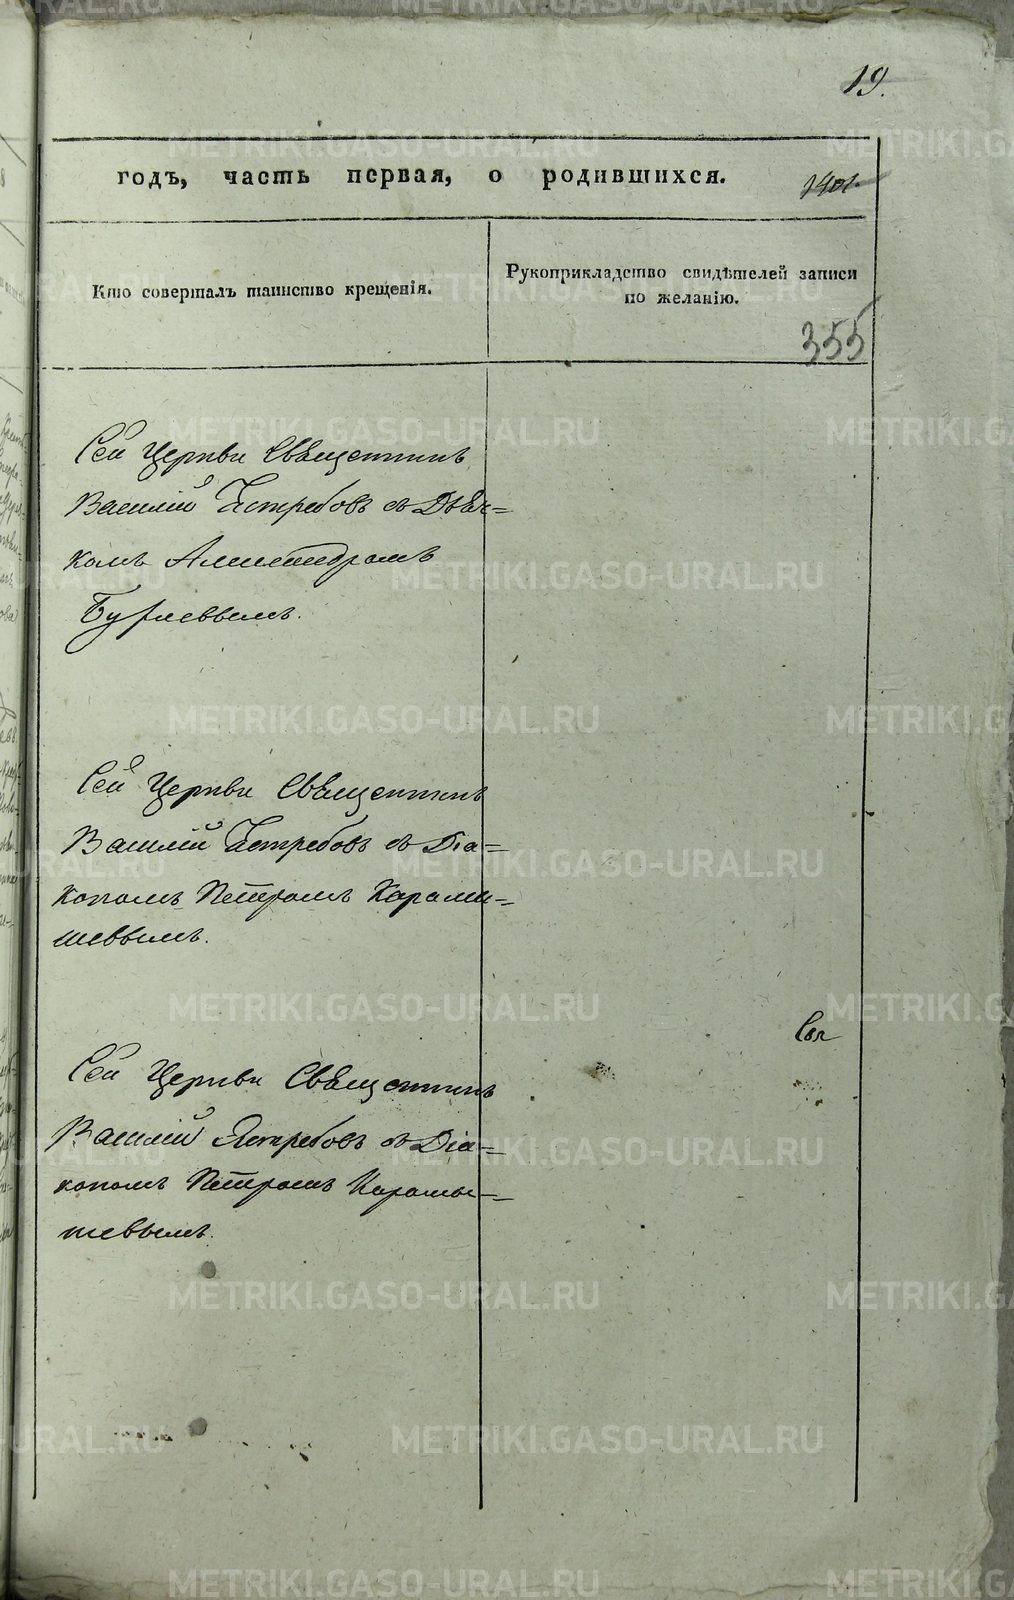 19.
годъ, часть первая, о родившихся.
1401.
Кто совершалъ таинство крещенія.
Рукоприкладство свидѣтелей записи
по желанію.
355
Сей Церкви Священникъ
Василій Ястребовъ съ Дьяч=
комъ Александромъ
Сей Церкви Священникъ
Василій Ястребовъ съ Діа=
кономъ Петромъ Карамы=
шевымъ.
Свя
Сей Церкви Священникъ
Василій Ястребовъ съ Діа=
кономъ Петромъ Карамы=
шевымъ.
METRIKI.GASO-URAL.RU